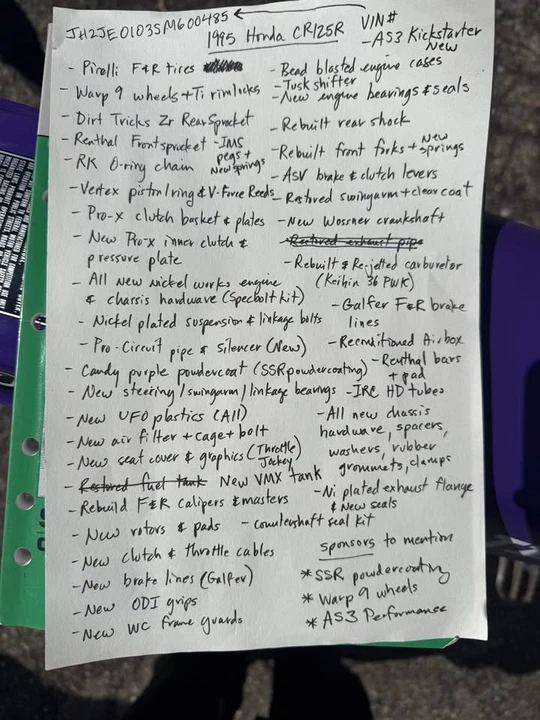 JH2JE0103SM600485 ← VIN#
1995 Honda CR125R
- AS3 Kickstarter
New
- Pirelli F&R tires
- Warp 9 wheels + Ti rimlocks
- Dirt Tricks Zr Rear Sprocket
- Renthal Front sprocket - IMS
pegs +
New springs
- RK O-ring chain
- Vertex piston/ring & V-Force Reeds
- Pro-X clutch basket & plates
- New Pro-x inner clutch &
pressure plate
- All New nickel works engine
& chassis hardware (Specbolt kit)
- Nickel plated suspension & linkage bolts
- Pro-Circuit pipe & Silencer (New)
- Candy purple powdercoat (SSR powdercoating)
- New steering/swingarm/linkage bearings
- New UFO plastics (All)
- New air filter + cage + bolt
- New seat cover & graphics (Throttle
Jockey)
- Restored fuel tank New VMX tank
- Rebuild F&R calipers & masters
- New rotors & pads
- countershaft seal kit
- New clutch & throttle cables
- New brake lines (Galfer)
- New ODI grips
- New WC frame guards
- Bead blasted engine cases
- Tusk shifter
- New engine bearings & seals
- Rebuilt rear shock
- Rebuilt front forks + New
springs
- ASV brake & clutch levers
- Restored swingarm + clear coat
- New Wossner crankshaft
- Restored exhaust pipe
- Rebuilt & Re-jetted carburetor
(Keihin 36 PWK)
- Galfer F&R brake
lines
- Reconditioned Airbox
- Renthal bars
+ pad
- IRC HD tubes
- All new chassis
hardware, spacers,
washers, rubber
grommets, clamps
- Ni plated exhaust flange
& New seals
sponsors to mention
* SSR powdercoating
* Warp 9 wheels
* AS3 Performance